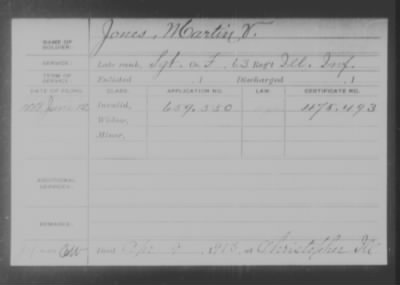 NAME OF SOLDIER: Jones, Martin V.
SERVICE: Late rank, Sgt. Co. F, 63 Reg't Ill. Inf.
TERM OF SERVICE: Enlisted , 1 Discharged , 1
DATE OF FILING. CLASS. APPLICATION NO. LAW. CERTIFICATE NO.
June 12 Invalid, 659.550 1175.493
Widow,
Minor,
ADDITIONAL SERVICES:
REMARKS:
Died 191 at Christopher Ill